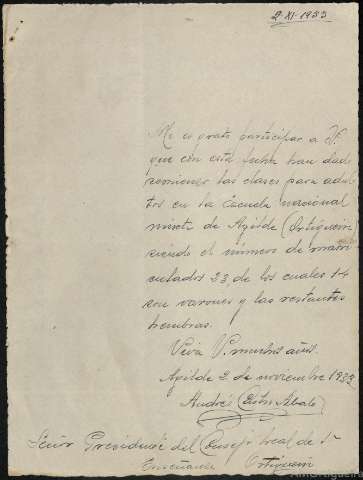 2-XI-1933
Me es grato participar a V.
que con esta fecha han dado
comienzo las clases para adul
tos en la Escuela nacional
mixta de (Ortigueira)
siendo el número de matri
culados 23 de los cuales 14
son varones y las restantes
hembras.
Viva V. muchos años.
2 de noviembre 1933
André
Señor Presidente del Consejo local de 1ª
Enseñanza Ortigueira